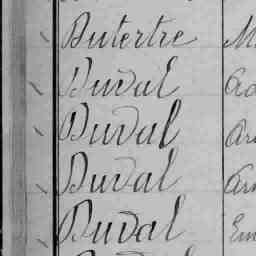 Dutertre M
Duval Ad
Duval Ar
Duval Ar
Duval Em